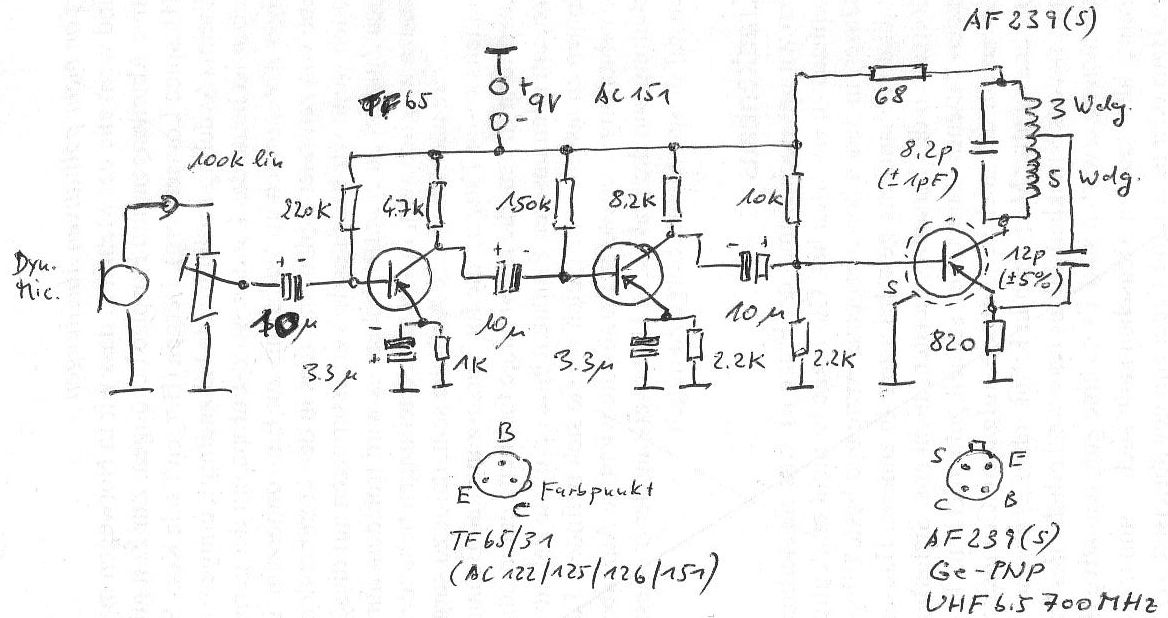 AF239(S)
TF65
+
9V
-
AC151
68
3 Wdg.
100k lin
8.2p
(±1pF)
5 Wdg.
220K
4.7K
150K
8.2K
10k
Dyn.
Mic.
+
-
+
-
+
12p
(±5%)
S
10µ
10µ
10µ
-
+
3.3µ
1K
3.3µ
2.2K
2.2K
820
B
E
C
Farbpunkt
TF65/31
(AC122/125/126/151)
S
E
C
B
AF239(S)
Ge-PNP
UHF 700MHz